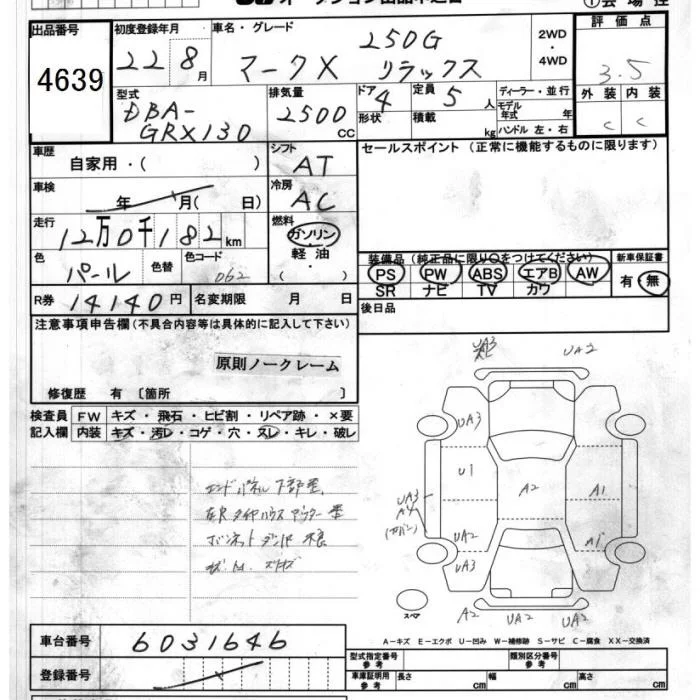 出品番号
4639
初度登録年月
22 8月
車名・グレード
250G
マークX リラックス
2WD
・
4WD
評価点
3.5
外装 内装
C C
型式
DBA-
GRX130
排気量
2500
CC
ドア 4
形状
定員 5 人
積載 kg
ディーラー・並行
モデル
年式 年
ハンドル 左・右
車歴
自家用・( )
シフト
AT
車検
年 月( 日)
冷房
AC
走行
12万0千182km
燃料
ガソリン
軽油
( )
色
パール
色替
色コード
062
R券 14140円
名変期限 月 日
セールスポイント(正常に機能するものに限ります)
装備品(純正品に限り〇をつけてください)
PS PW ABS エアB AW
SR ナビ TV カワ
新車保証書
有・無
後日品
注意事項申告欄(不具合内容等は具体的に記入して下さい)
原則ノークレーム
修復歴 有〔箇所 〕
検査員 FW キズ・飛石・ヒビ割・リペア跡・×要
記入欄 内装 キズ・汚レ・コゲ・穴・スレ・キレ・破レ
エンドパネル下部
ボンネット
UA3
UA2
UA3
U1
A2
A1
UA3
UA2
A1
UA3
スペア
A2 UA2 UA2
A-キズ E-エクボ U-凹み W-補修跡 S-サビ C-腐食 XX-交換済
車台番号 6031646
登録番号
型式指定番号
参考
類別区分番号
参考
車庫証明用
参考
長さ cm
幅 cm
高さ cm